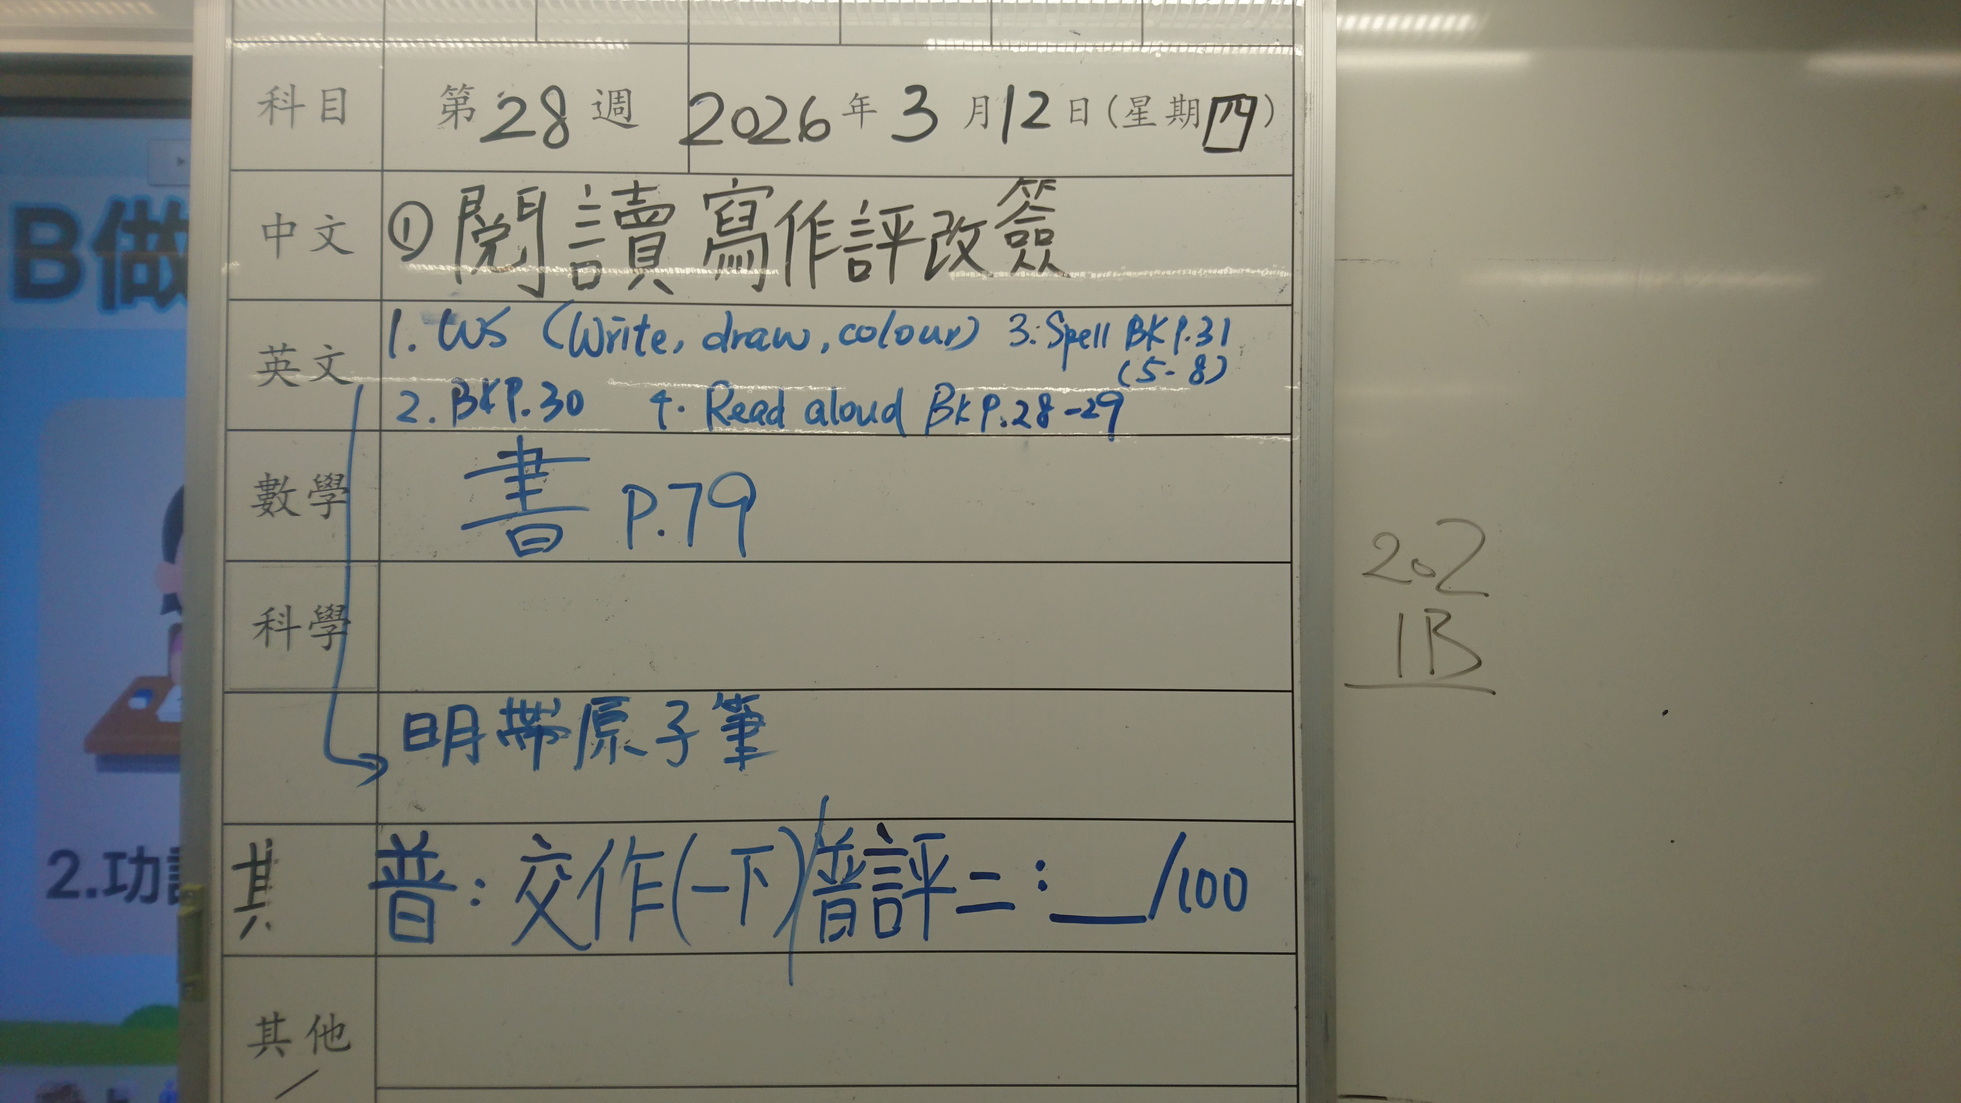 科目 第28週 2026年3月12日(星期四)
中文 ①閱讀寫作評改簽
英文 1. WS (Write, draw, colour) 3. Spell BK P.31
(5-8)
2. BK P.30 4. Read aloud BK P.28-29
數學 書 P.79
科學
明帶原子筆
其 普:交作(一下) 普評二:__/100
其他
B做
2.功
202
1B